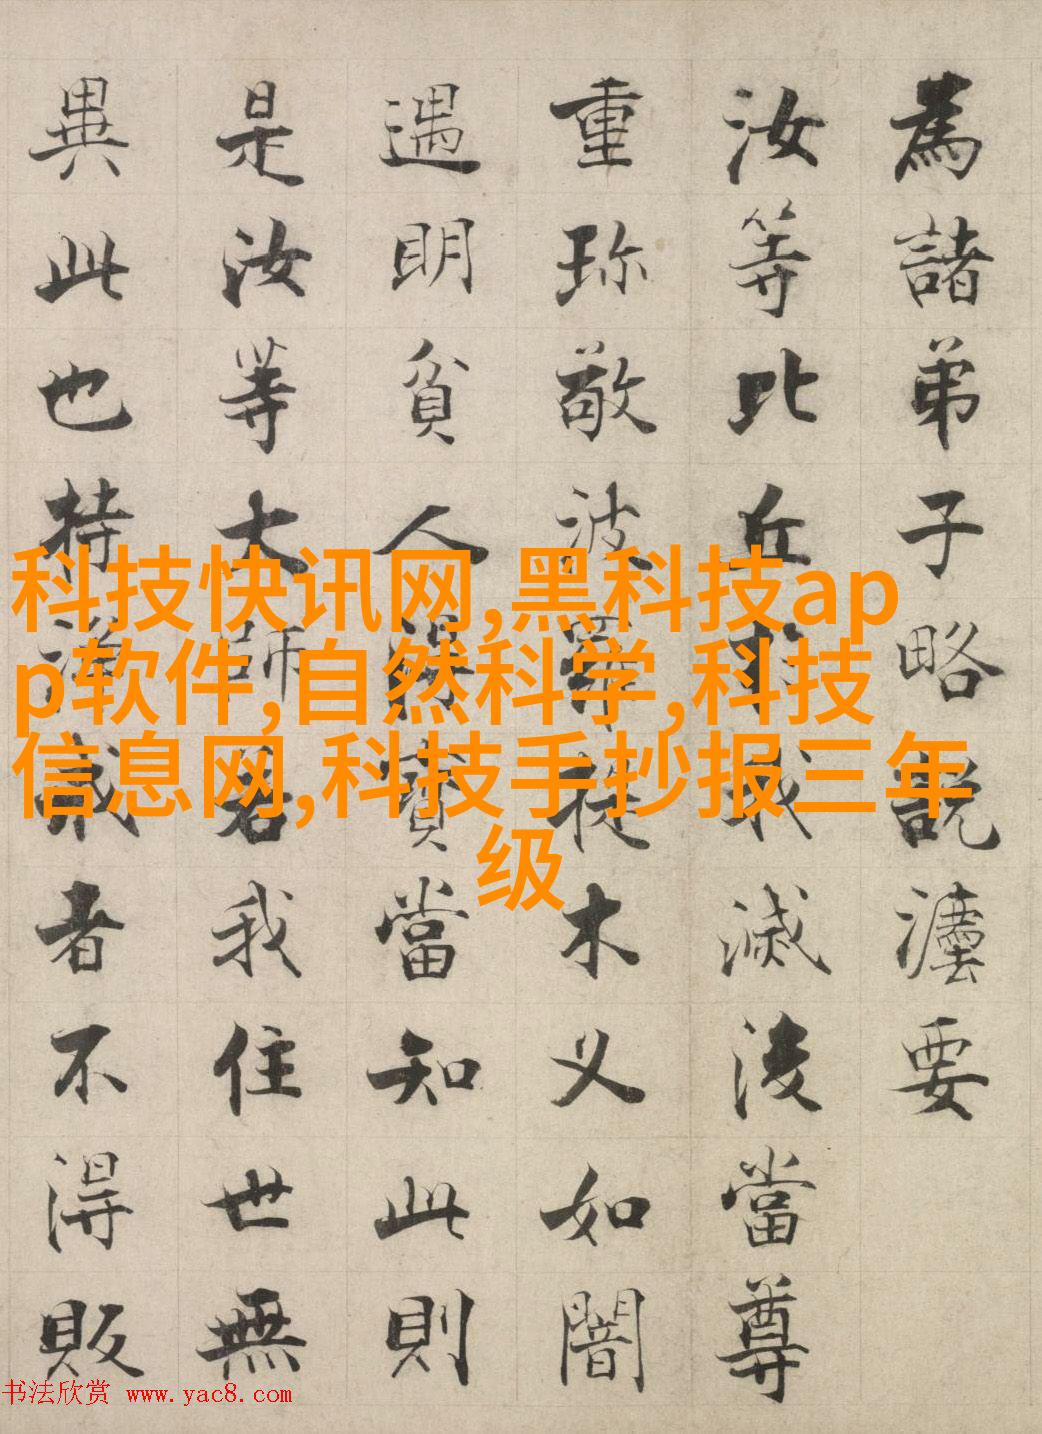 為諸弟子略說灋要
汝等比丘於我滅後當尊
重珎敬波羅提木叉如闇
遇明貧人得寶當知此則
是汝等大師若我住世無
異此也持淨戒者不得販
科技快讯网,黑科技ap
p软件,自然科学,科技
信息网,科技手抄报三年
级
书法欣赏 www.yac8.com